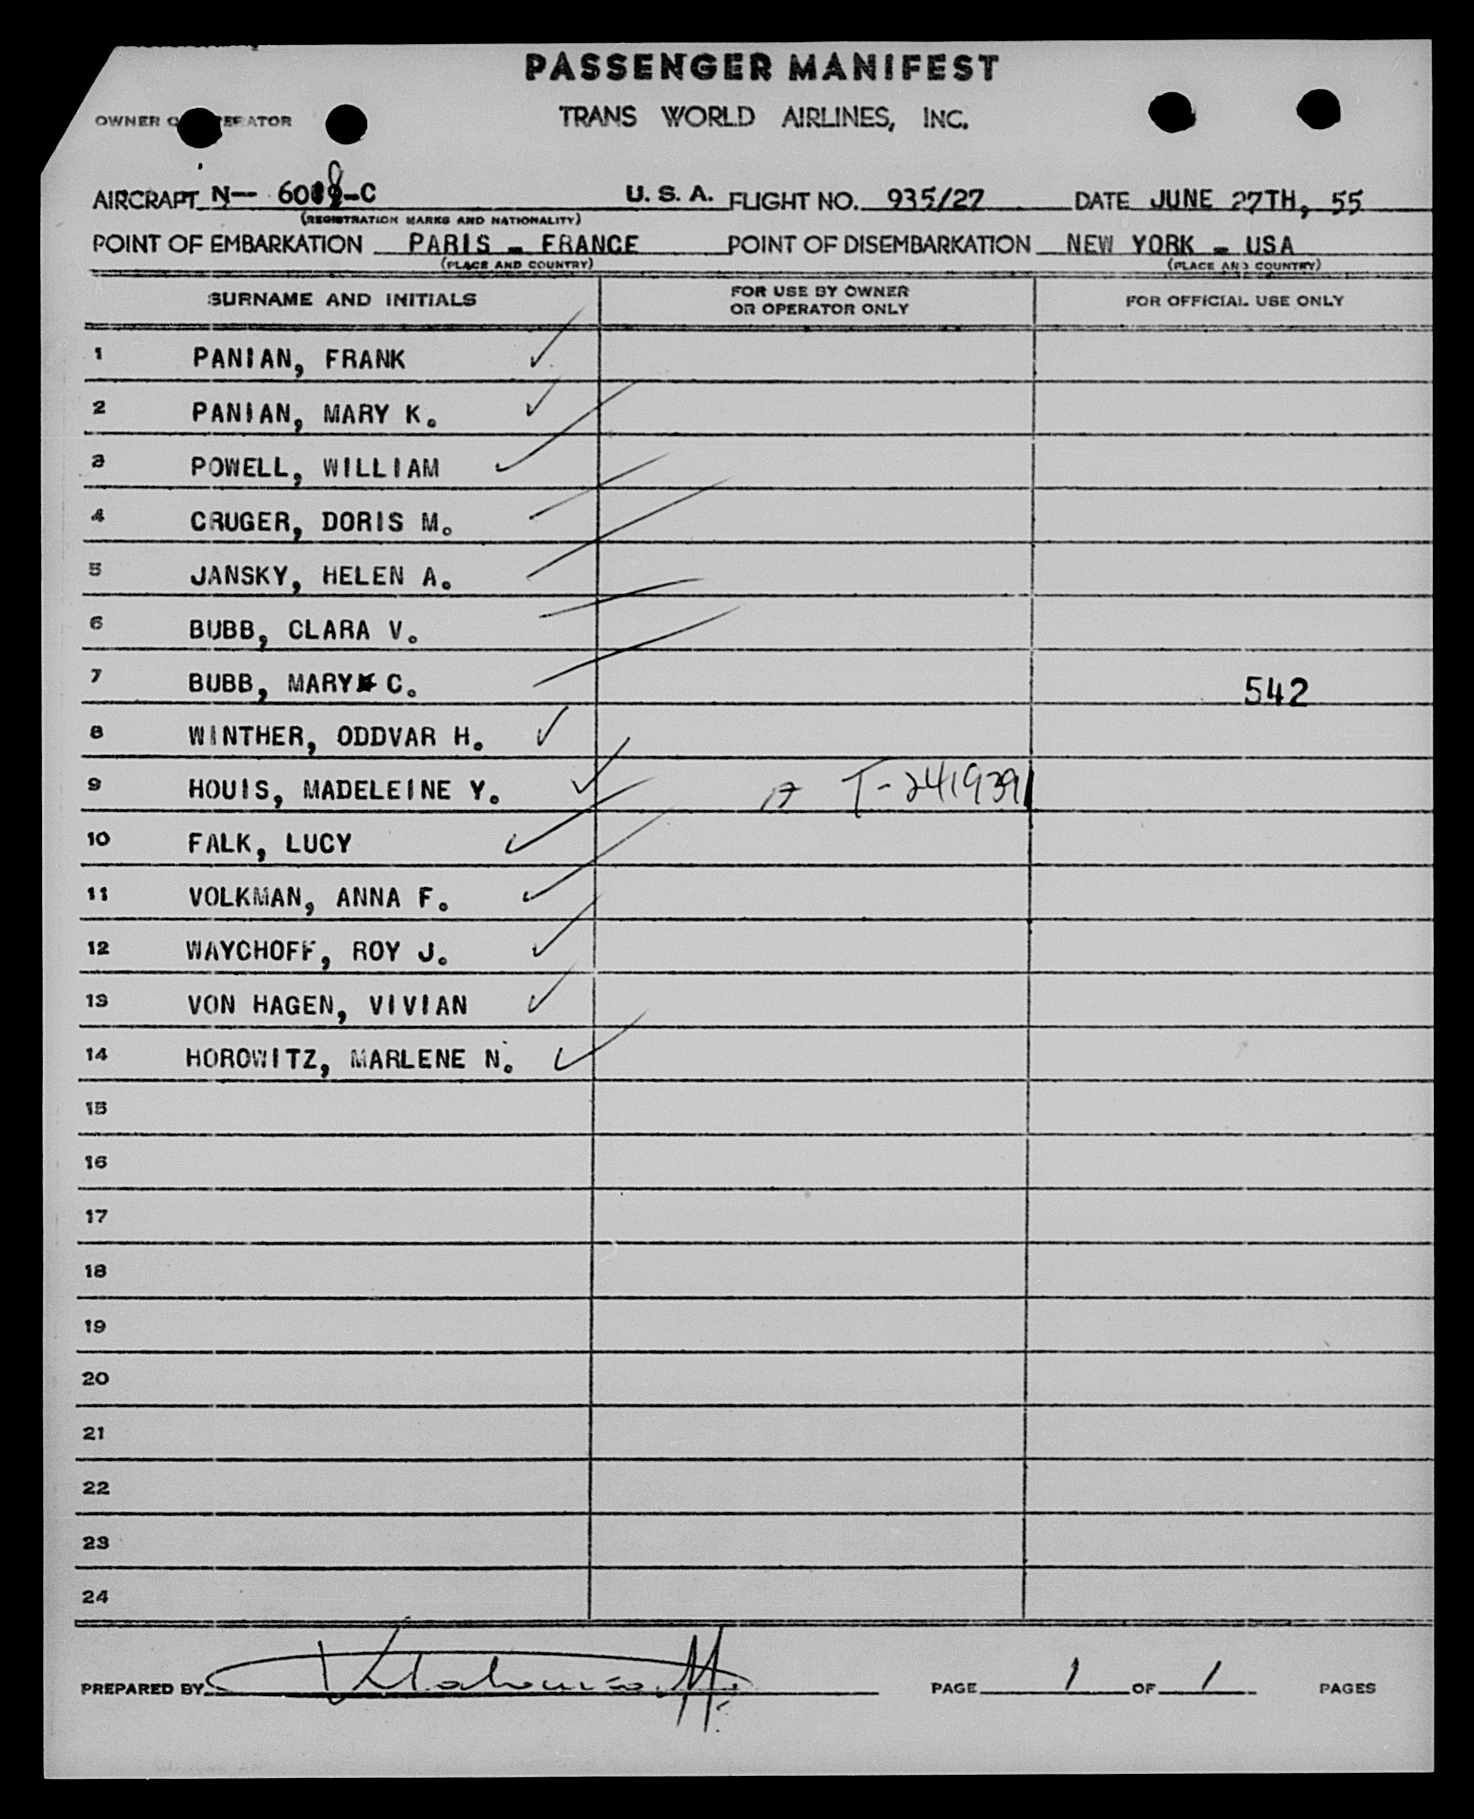 PASSENGER MANIFEST
OWNER OPERATOR
TRANS WORLD AIRLINES, INC.
AIRCRAFT N— -C U. S. A. FLIGHT NO. 935/27 DATE JUNE 27TH, 55
(REGISTRATION MARKS AND NATIONALITY)
POINT OF EMBARKATION PARIS - FRANCE POINT OF DISEMBARKATION NEW YORK - USA
(PLACE AND COUNTRY) (PLACE AND COUNTRY)
SURNAME AND INITIALS FOR USE BY OWNER OR OPERATOR ONLY FOR OFFICIAL USE ONLY
1 PANIAN, FRANK
2 PANIAN, MARY K.
3 POWELL, WILLIAM
4 CRUGER, DORIS M.
5 JANSKY, HELEN A.
6 BUBB, CLARA V.
7 BUBB, MARY C. 542
8 WINTHER, ODDVAR H.
9 HOUIS, MADELEINE Y. T-2419391
10 FALK, LUCY
11 VOLKMAN, ANNA F.
12 WAYCHOFF, ROY J.
13 VON HAGEN, VIVIAN
14 HOROWITZ, MARLENE N.
15
16
17
18
19
20
21
22
23
24
PREPARED BY PAGE 1 OF 1 PAGES